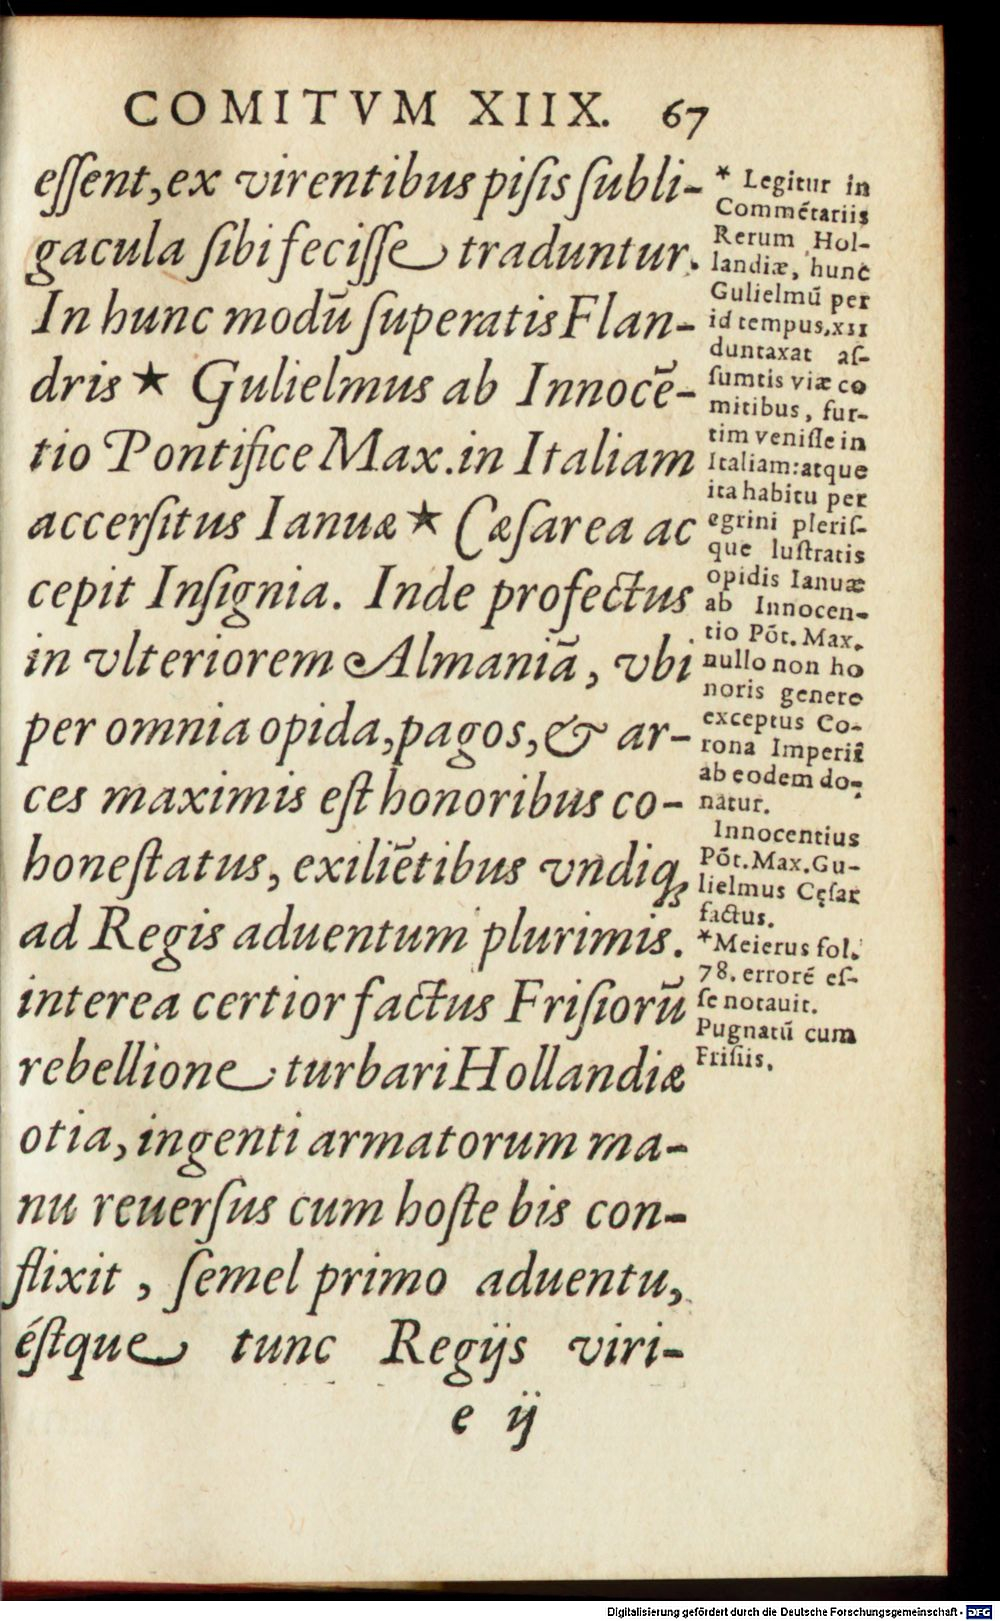 COMITVM XIIX. 67
eſſent, ex virentibus piſis ſubli-
gacula ſibi feciſſe traduntur.
In hunc modū ſuperatis Flan-
dris * Gulielmus ab Innocē-
tio Pontifice Max. in Italiam
accerſitus Ianuæ * Cæſarea ac
cepit Inſignia. Inde profectus
in vlteriorem Almaniā, vbi
per omnia opida, pagos, & ar-
ces maximis eſt honoribus co-
honeſtatus, exiliētibus vndiq;
ad Regis aduentum plurimis.
interea certior factus Friſiorū
rebellione turbari Hollandiæ
otia, ingenti armatorum ma-
nu reuerſus cum hoſte bis con-
flixit, ſemel primo aduentu,
éſtque tunc Regijs viri-
e ij
* Legitur in
Commētariis
Rerum Hol-
landiæ, hunc
Gulielmū per
id tempus, XII
duntaxat aſ-
ſumtis viæ co
mitibus, fur-
tim veniſſe in
Italiam: atque
ita habitu per
egrini pleriſ-
que luſtratis
opidis Ianuæ
ab Innocen-
tio Pōt. Max.
nullo non ho
noris genere
exceptus Co-
rona Imperii
ab eodem do-
natur.
Innocentius
Pōt. Max. Gu-
lielmus Cęſar
factus.
* Meierus fol.
78. erroré eſ-
ſe notauit.
Pugnatū cum
Friſiis.
Digitalisierung gefördert durch die Deutsche Forschungsgemeinschaft - DFG